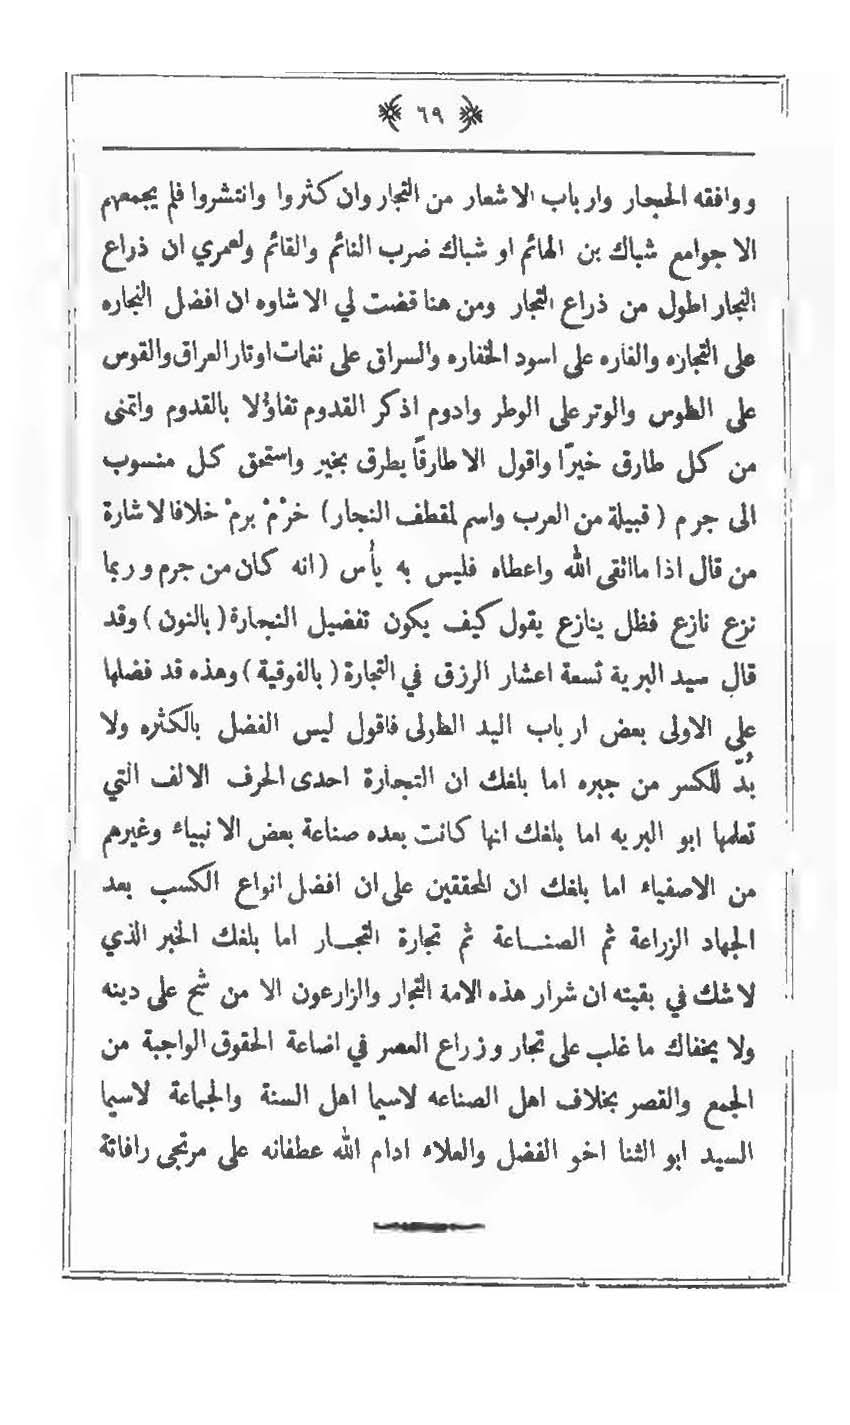 ٦٩
ووافقه الحجار وارباب الاشعار من التجار وان كثروا وانتشروا فلم يجمعهم
الا جوامع شباك بن الهائم او شباك ضرب النائم والقائم ولعمري ان ذراع
النجار اطول من ذراع التجار ومن هنا قضت لي الاشاوه ان افضل النجاره
على التجاره والفاره على اسود الخفاره والسراق على نغمات اوتار العراق والقوس
على الطوس والوتر على الوطر وادوم اذكر القدوم تفاؤلا بالقدوم واتمنى
من كل طارق خيرًا واقول الا طارقًا يطرق بخير واستحق كل منسوب
الى جرم ( قبيلة من العرب واسم لمقطف النجار ) خرْمْ برمْ خلافا لاشارة
من قال اذا ما اتقى الله واعطاه فليس به بأس (انه كان من جرم وربما
نزع نازع فظل ينازع يقول كيف يكون تفضيل النجارة ( بالنون ) وقد
قال سيد البرية تسعة اعشار الرزق في التجارة ( بالفوقية ) وهذه قد فضلها
على الاولى بعض ارباب اليد الطولى فاقول ليس الفضل بالكثره ولا
بُدّ للكسر من جبره اما بلغك ان النجارة احدى الحرف الالف التي
تعلمها ابو البريه اما بلغك انها كانت بعده صناعة بعض الانبياء وغيرهم
من الاصفياء اما بلغك ان المحققين على ان افضل انواع الكسب بعد
الجهاد الزراعة ثم الصنـاعة ثم تجارة التجـار اما بلغك الخبر الذي
لاشك في بقيته ان شرار هذه الامة التجار والزارعون الا من شح على دينه
ولا يخفاك ما غلب على تجار وزراع العصر في اضاعة الحقوق الواجبة من
الجمع والقصر بخلاف اهل الصناعه لاسيما اهل السنة والجماعة لاسيما
السيد ابو الثنا اخو الفضل والعلاء ادام الله عطفانه على مرتجى رافاتة